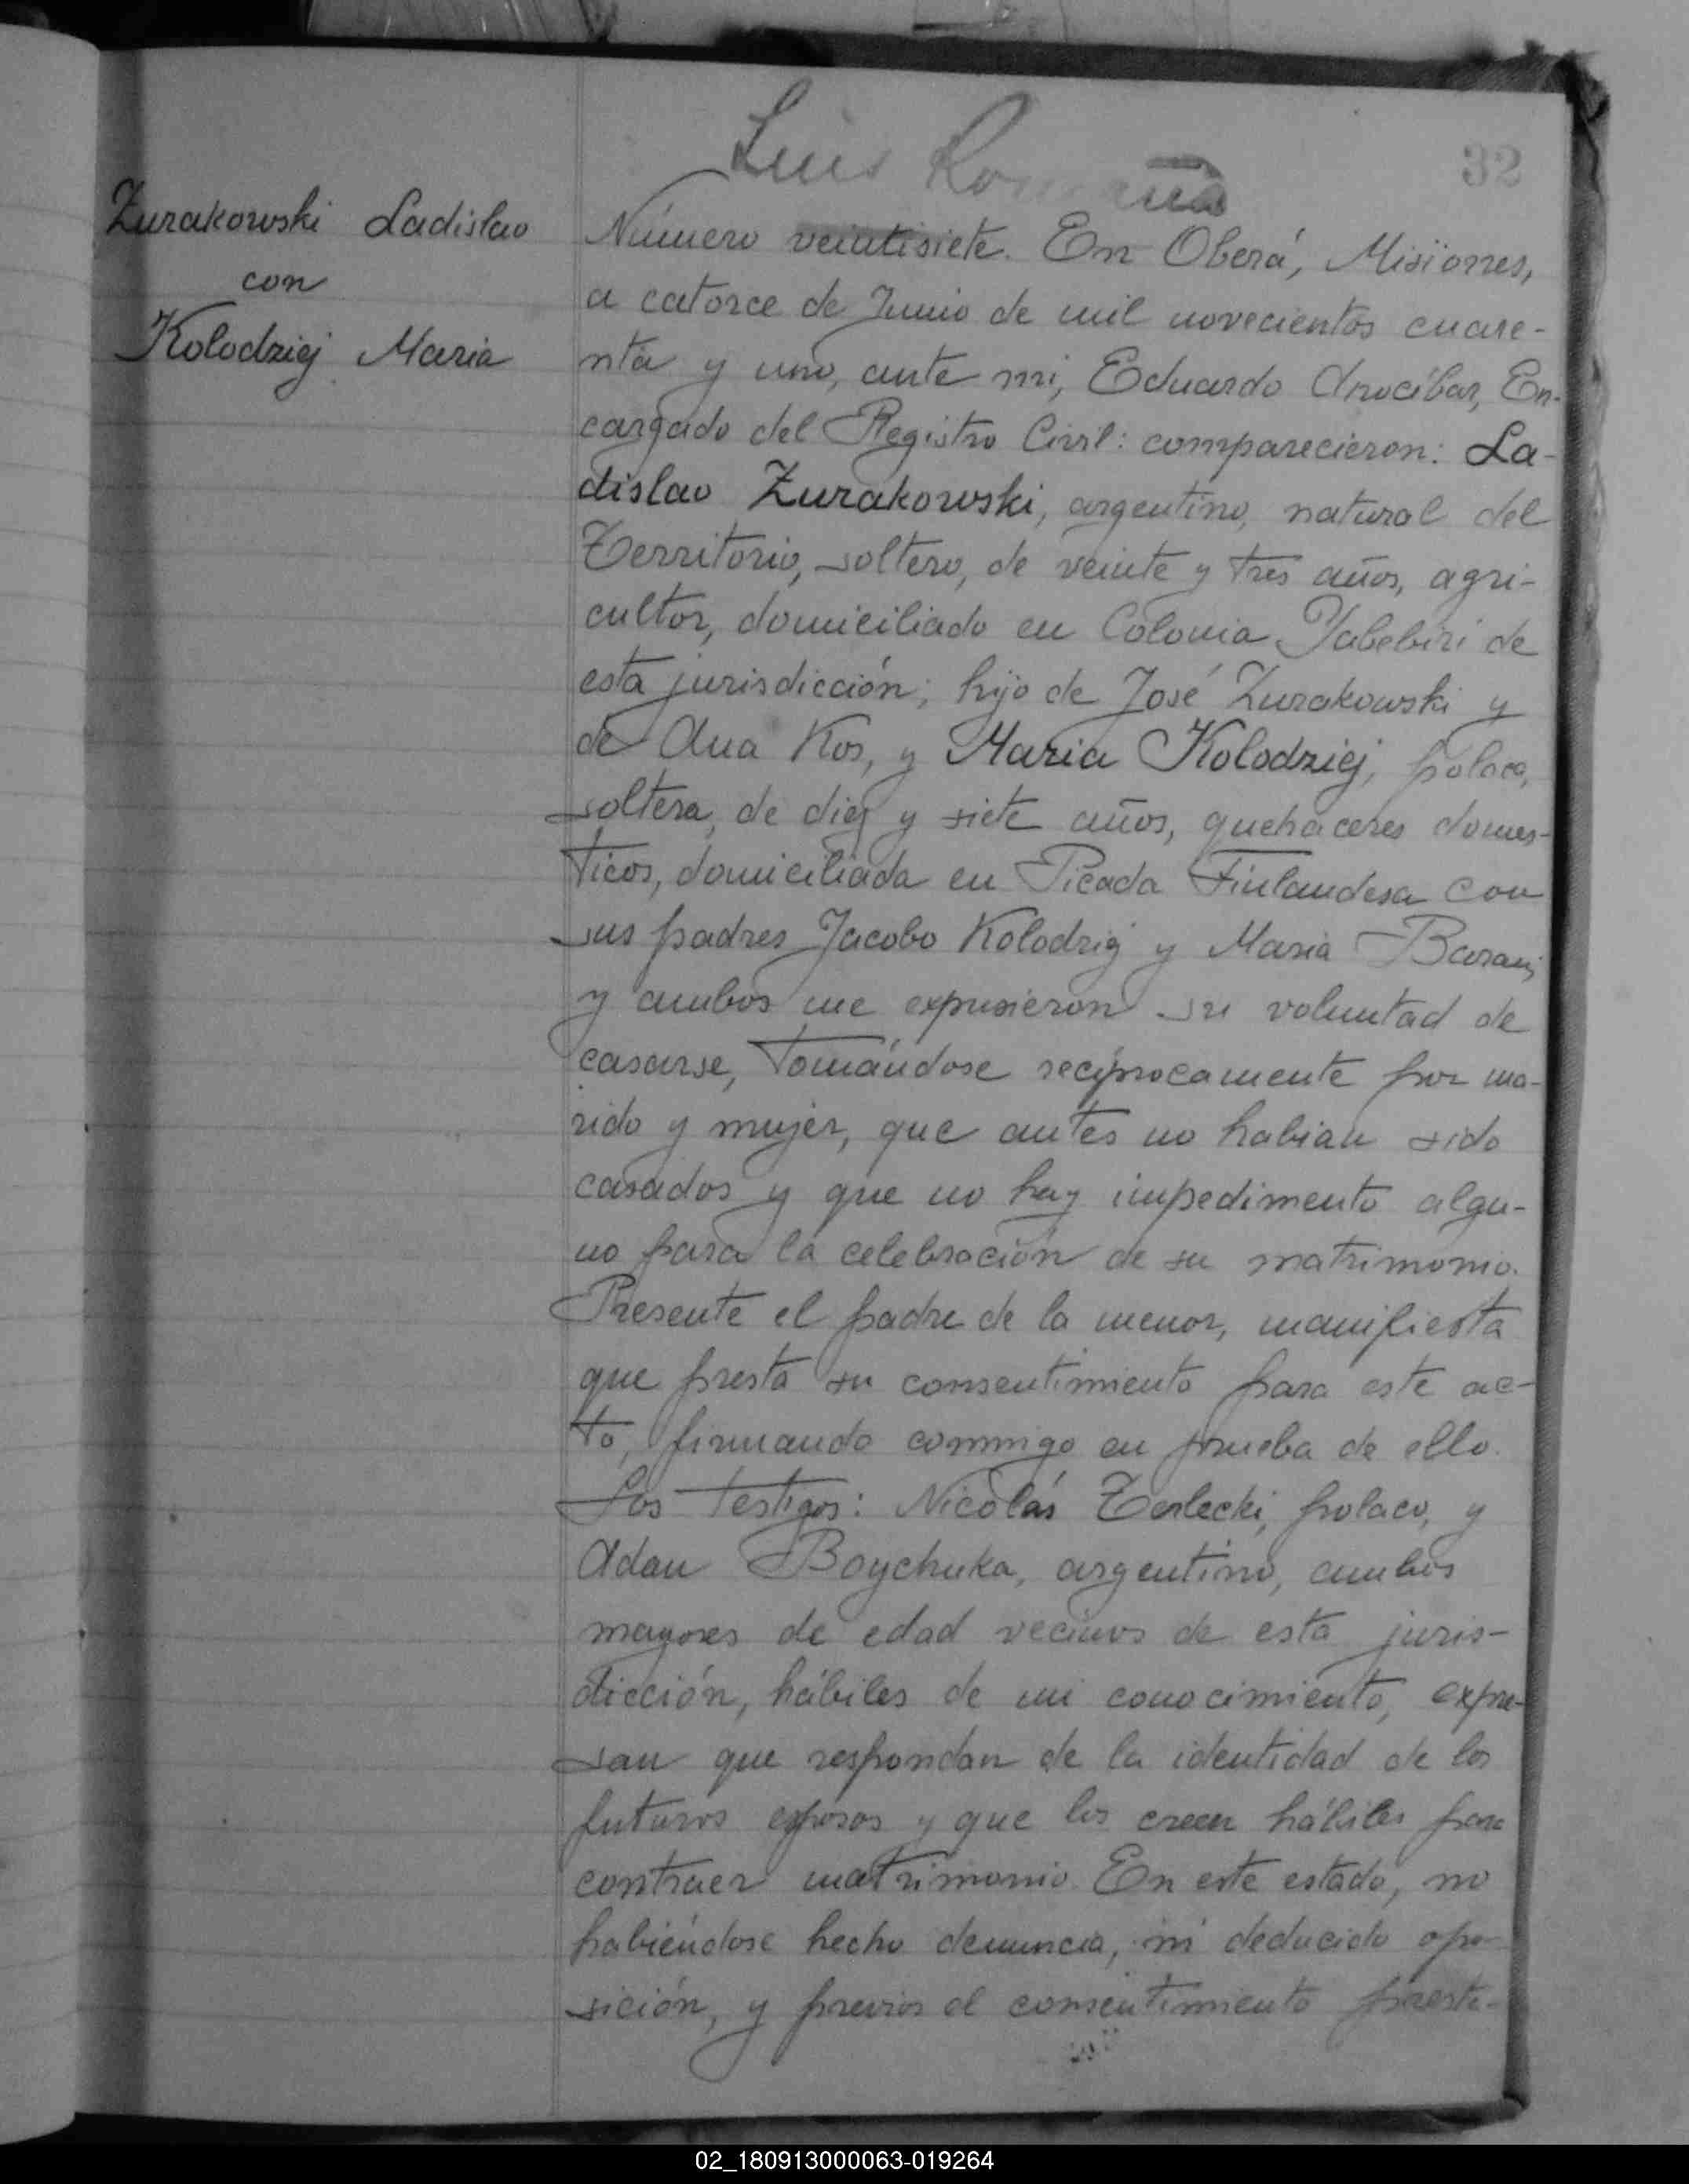 Luis Romaña
32
Zurakowski Ladislao
con
Kolodziej Maria
Número veintisiete. En Oberá, Misiones,
a catorce de Junio de mil novecientos cuare-
nta y uno, ante mi, Eduardo Anocíbar, En-
cargado del Registro Civil: comparecieron: La-
dislao Zurakowski, argentino, natural del
Territorio, soltero, de veinte y tres años, agri-
cultor, domiciliado en Colonia Yabebiri de
esta jurisdicción; hijo de José Zurakowski y
de Ana Kos, y Maria Kolodziej, polaca,
soltera, de diez y siete años, quehaceres domes-
ticos, domiciliada en Picada Finlandesa con
sus padres Jacobo Kolodziej y Maria
y ambos me expusieron su voluntad de
casarse, tomándose recíprocamente por ma-
rido y mujer, que antes no habian sido
casados y que no hay impedimento algu-
no para la celebración de su matrimonio.
Presente el padre de la menor, manifiesta
que presta su consentimiento para este ac-
to, firmando conmigo en prueba de ello.
Los testigos: Nicolás Terlecki, polaco, y
Adan Boychuka, argentino, ambos
mayores de edad vecinos de esta juris-
dicción, hábiles de mi conocimiento, expre-
san que respondan de la identidad de los
futuros esposos y que los creen hábiles para
contraer matrimonio. En este estado, no
habiéndose hecho denuncia, ni deducido opo-
sición, y previos el consentimiento presta-
02_180913000063-019264